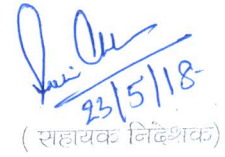 23/5/18-
( सहायक निदेशक)